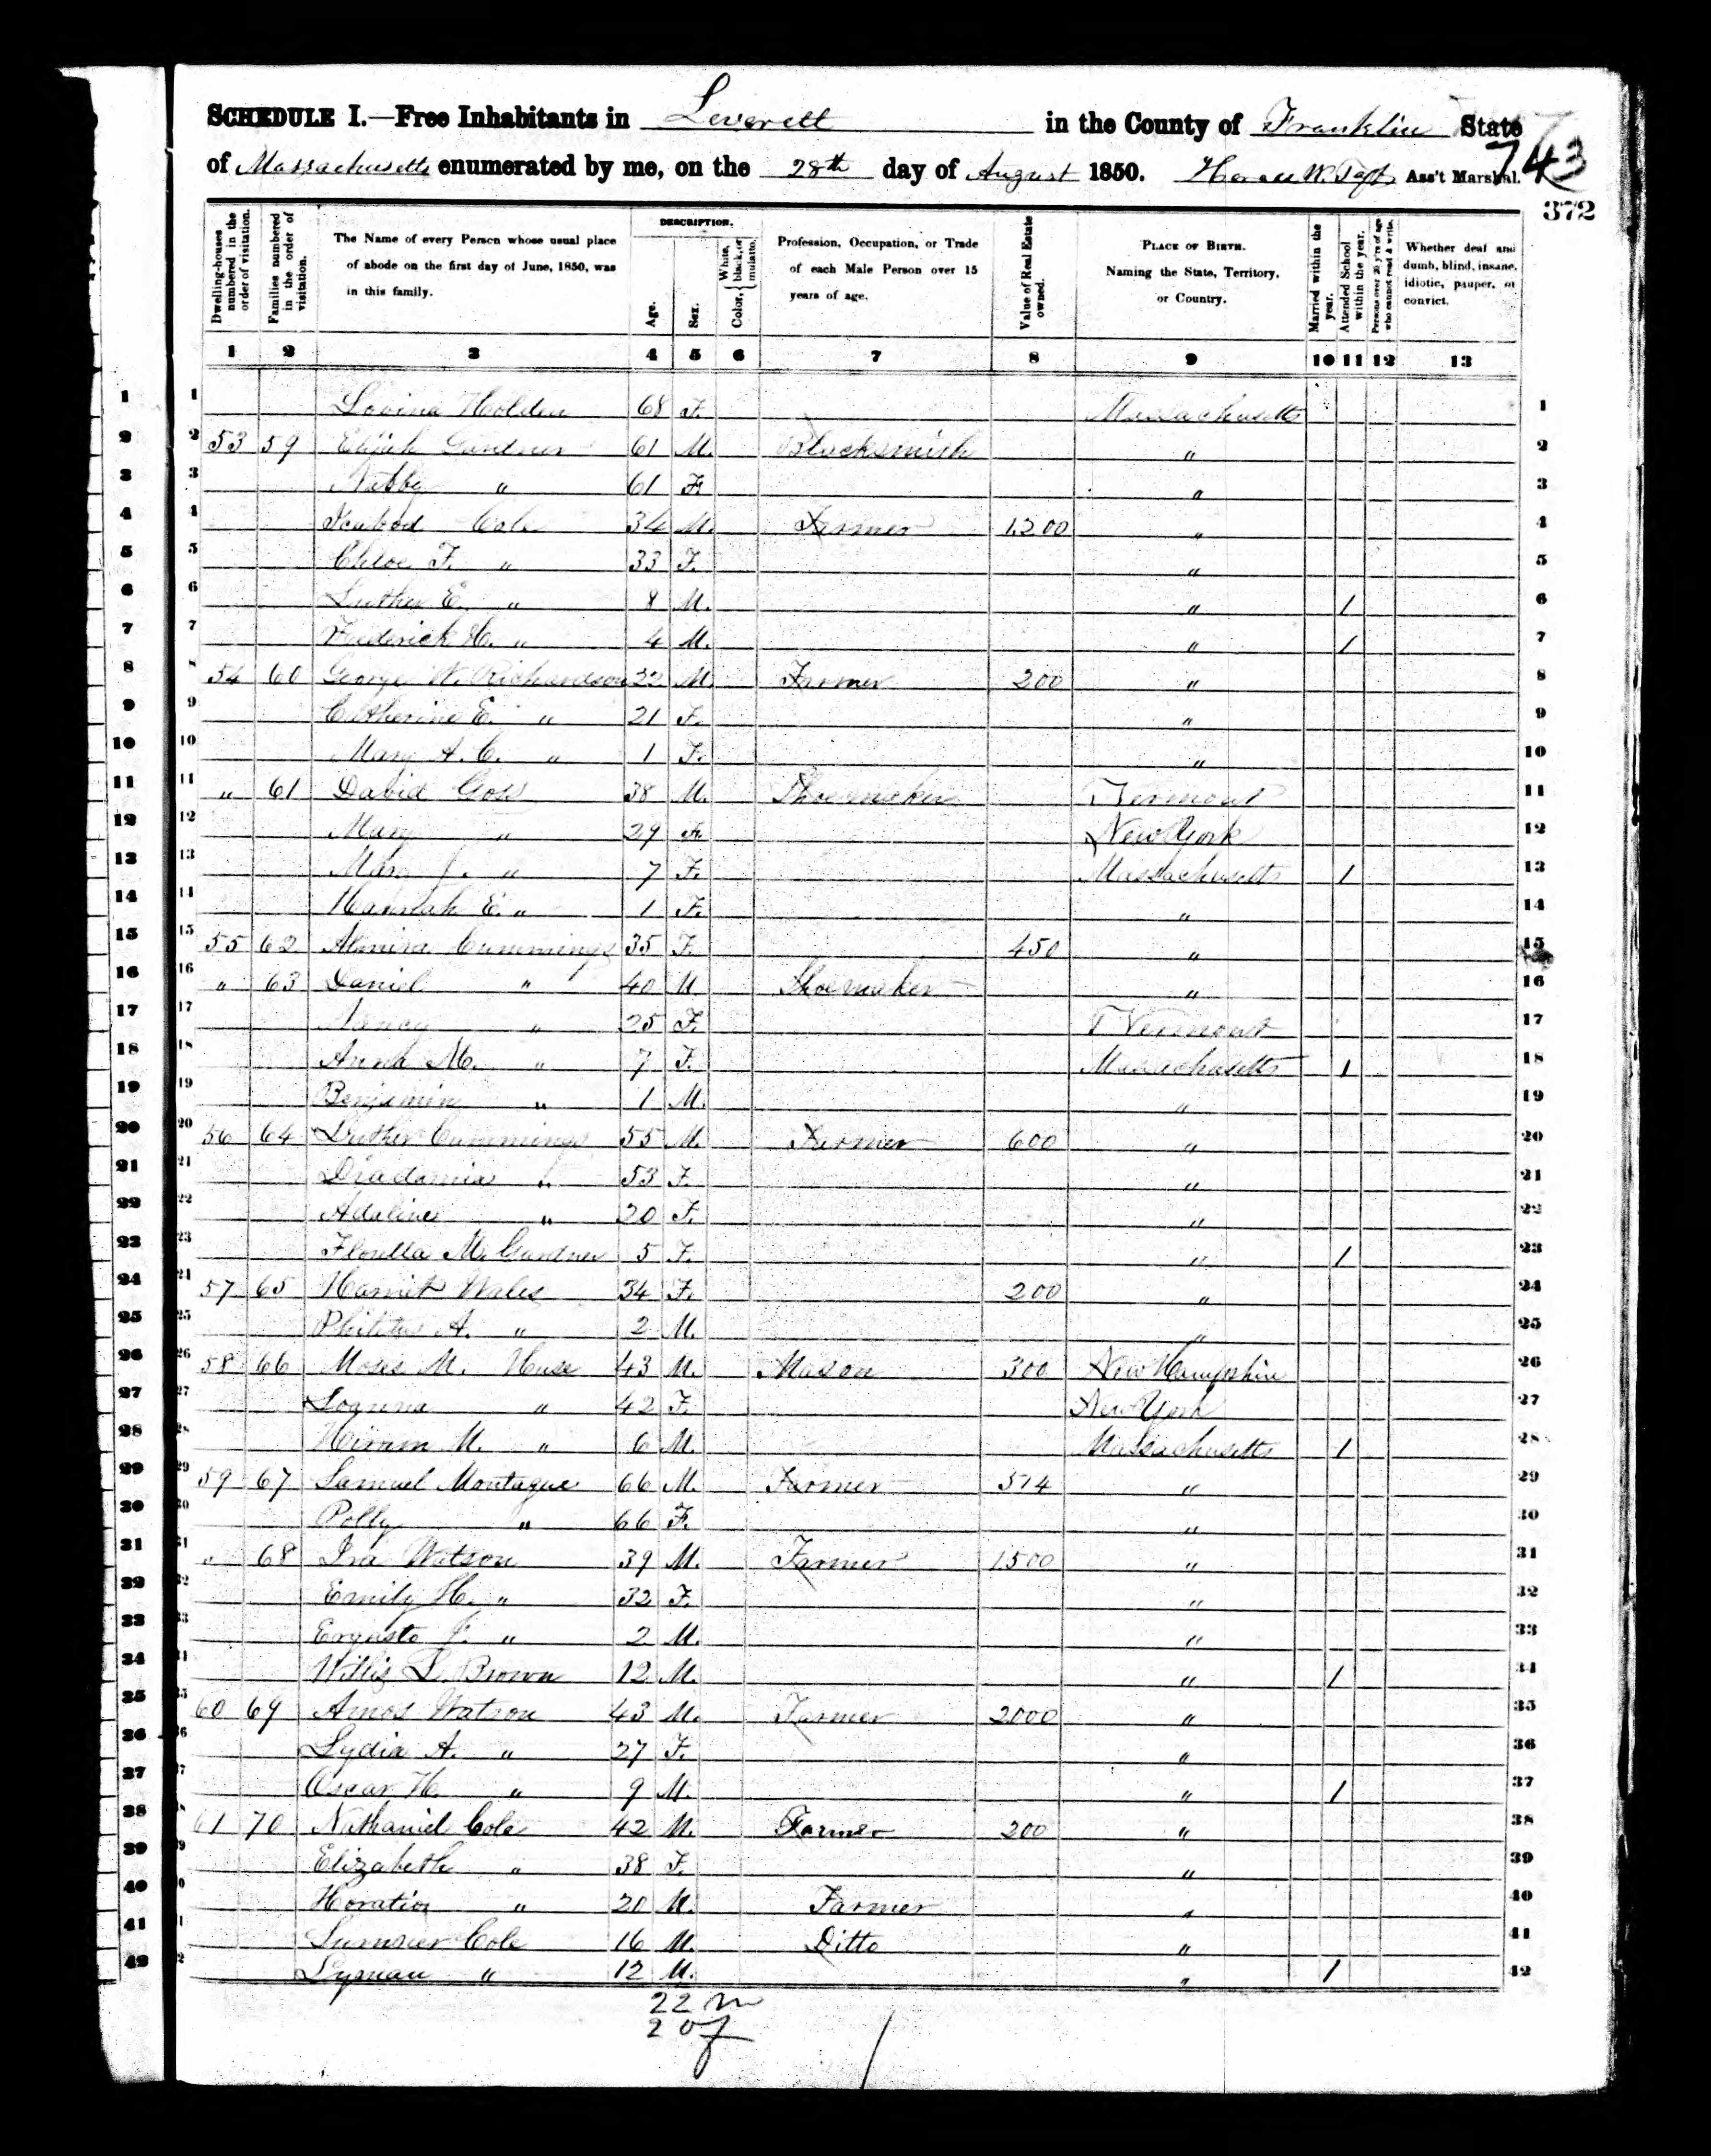 SCHEDULE I.—Free Inhabitants in Leverett in the County of Franklin State
of Massachusetts enumerated by me, on the 28th day of August 1850. Horace W. Taft Ass't Marshal.
743
372
Dwelling-houses numbered in the order of visitation.
Families numbered in the order of visitation.
The Name of every Person whose usual place of abode on the first day of June, 1850, was in this family.
DESCRIPTION.
Age.
Sex.
Color, { White, black, or mulatto.
Profession, Occupation, or Trade of each Male Person over 15 years of age.
Value of Real Estate owned.
PLACE OF BIRTH. Naming the State, Territory, or Country.
Married within the year.
Attended School within the year.
Persons over 20 y'rs of age who cannot read & write.
Whether deaf and dumb, blind, insane, idiotic, pauper, or convict.
1 2 3 4 5 6 7 8 9 10 11 12 13
1 Lovina Holden 68 F. Massachusetts 1
2 53 59 Elijah Gardner 61 M. Blacksmith " 2
3 Nabby " 61 F. " 3
4 Cole 34 M. Farmer 1,200 " 4
5 Chloe F. " 33 F. " 5
6 Luther E. " 8 M. " 1 6
7 Frederick H. " 4 M. " 1 7
8 54 60 George W. Richardson 22 M. Farmer 200 " 8
9 Catherine E. " 21 F. " 9
10 Mary A. C. " 1 F. " 10
11 " 61 David Goss 38 M. Shoemaker Vermont 11
12 Mary " 29 F. New York 12
13 Mary J. " 7 F. Massachusetts 1 13
14 Hannah E. " 1 F. " 14
15 55 62 Almira Cummings 35 F. 450 " 15
16 " 63 Daniel " 40 M Shoemaker " 16
17 Nancy " 25 F. Vermont 17
18 Anna M. " 7 F. Massachusetts 1 18
19 Benjamin " 1 M. " 19
20 56 64 Luther Cummings 55 M. Farmer 600 " 20
21 Diadamia " 53 F. " 21
22 Adaline " 20 F. " 22
23 Floretta M. Gardner 5 F. " 1 23
24 57 65 Harriet Wales 34 F. 200 " 24
25 Philetus A. " 2 M. " 25
26 58 66 Moses M. Huse 43 M. Mason 300 New Hampshire 26
27 " 42 F. New York 27
28 Hiram M. " 6 M. Massachusetts 1 28
29 59 67 Samuel Montague 66 M. Farmer 574 " 29
30 Polly " 66 F. " 30
31 " 68 Ira Watson 39 M. Farmer 1500 " 31
32 Emily H. " 32 F. " 32
33 J. " 2 M. " 33
34 Willis L. Brown 12 M. " 1 34
35 60 69 Amos Watson 43 M. Farmer 2000 " 35
36 Lydia A. " 27 F. " 36
37 Oscar H. " 9 M. " 1 37
38 61 70 Nathaniel Cole 42 M. Farmer 200 " 38
39 Elizabeth " 38 F. " 39
40 Horatio " 20 M. Farmer " 40
41 Sumner Cole 16 M. Ditto " 41
42 Lyman " 12 M. " 1 42
22 m
20 f